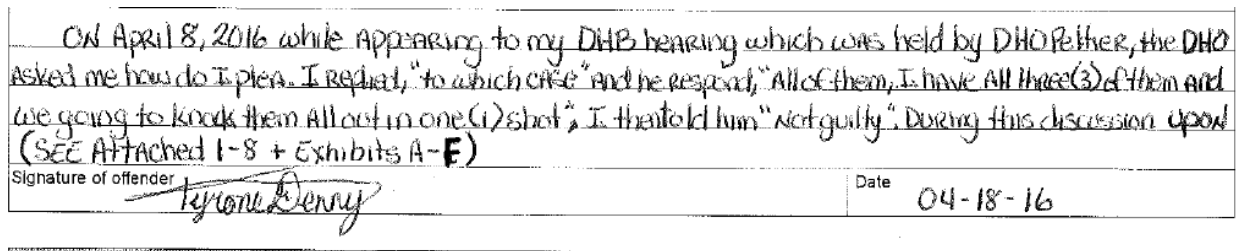 ON April 8, 2016 while Appearing to my DHB hearing which was held by DHO Pether, the DHO
Asked me how do I plea. I Replied, "to which CASE" And he Respond, "All of them, I have All three(3) of them And
we going to knock them All out in one(1) shot", I then told him "Not guilty". During this discussion upon
(SEE AttAched 1-8 + Exhibits A-F)
Signature of offender Tyrone Denny Date 04-18-16